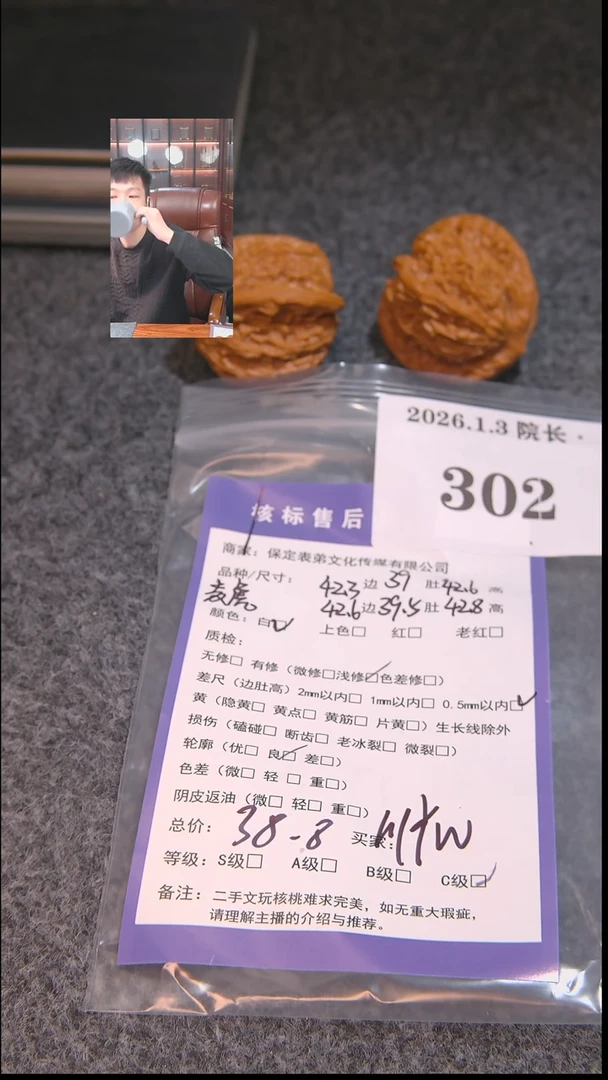 2026.1.3 院长·
302
核标售后
商家：保定表弟文化传媒有限公司
品种/尺寸： 42.3边 39 肚 42.6 高
42.6边 39.5 肚 42.8 高
颜色：白☑ 上色□ 红□ 老红□
质检：
无修□ 有修（微修□浅修☑色差修□）
差尺（边肚高）2mm以内□ 1mm以内□ 0.5mm以内☑
黄（隐黄□ 黄点□ 黄筋□ 片黄□）生长线除外
损伤（磕碰□ 断齿□ 老冰裂□ 微裂□）
轮廓（优□ 良☑ 差□）
色差（微□ 轻□ 重□）
阴皮返油（微□ 轻□ 重□）
总价： 38-8 买家：
等级：S级□ A级□ B级□ C级☑
备注：二手文玩核桃难求完美，如无重大瑕疵，
请理解主播的介绍与推荐。